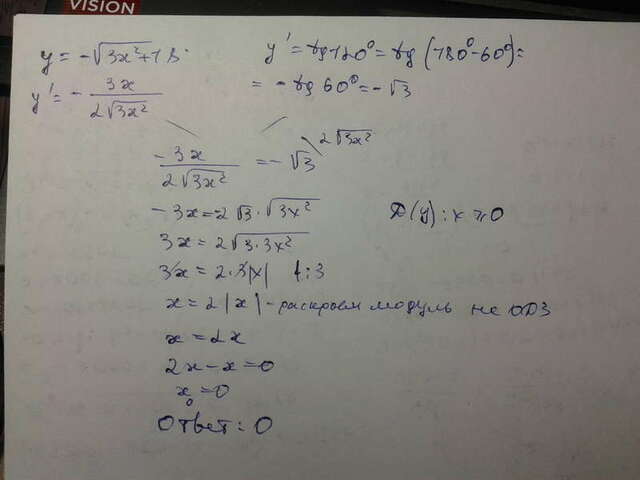 VISION
y = -√3x²+13.
y' = tg120° = tg(180°-60°)=
y' = - 3x / 2√3x²
= - tg 60° = -√3
-3x / 2√3x² = -√3
2√3x²
-3x = -2√3·√3x²
D(y): x ≥ 0
3x = 2√3·3x²
3x = 2·3|x| |:3
x = 2|x| - раскроем модуль на ОДЗ
x = 2x
2x - x = 0
x₀ = 0
Ответ: 0